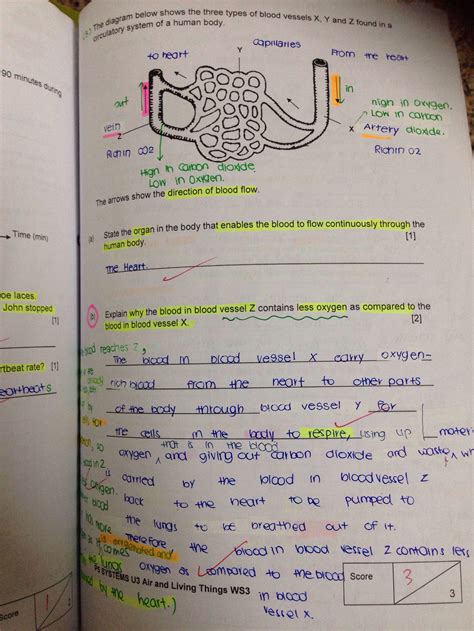 The diagram below shows the three types of blood vessels X, Y and Z found in a
circulatory system of a human body.
capillaries
to heart
Y
From the heart
90 minutes during
out
in
high in oxygen.
Low in carbon
vein
Z
X Artery dioxide.
Rich in CO2
Rich in O2
High in Carbon dioxide
Low in Oxygen.
The arrows show the direction of blood flow.
(a) State the organ in the body that enables the blood to flow continuously through the
human body. [1]
Time (min)
the Heart.
oe laces.
John stopped
[1]
(b) Explain why the blood in blood vessel Z contains less oxygen as compared to the
blood in blood vessel X. [2]
blood reaches Z,
artbeat rate? [1]
eartbeats
The blood in blood vessel X carry oxygen-
rich blood from the heart to other parts
of the body through blood vessel Y for
the cells in the body to respire, using up
that is in the blood
oxygen, and giving out carbon dioxide and waste
is carried by the blood in blood vessel Z
oxygen.
back to the heart to be pumped to
the lungs to be breathed out of it.
Therefore the blood in blood vessel Z contains less
oxygen as compared to the blood
SYSTEMS U3 Air and Living Things WS3
in blood
vessel X.
by the heart.)
Score 3
3
Score 1